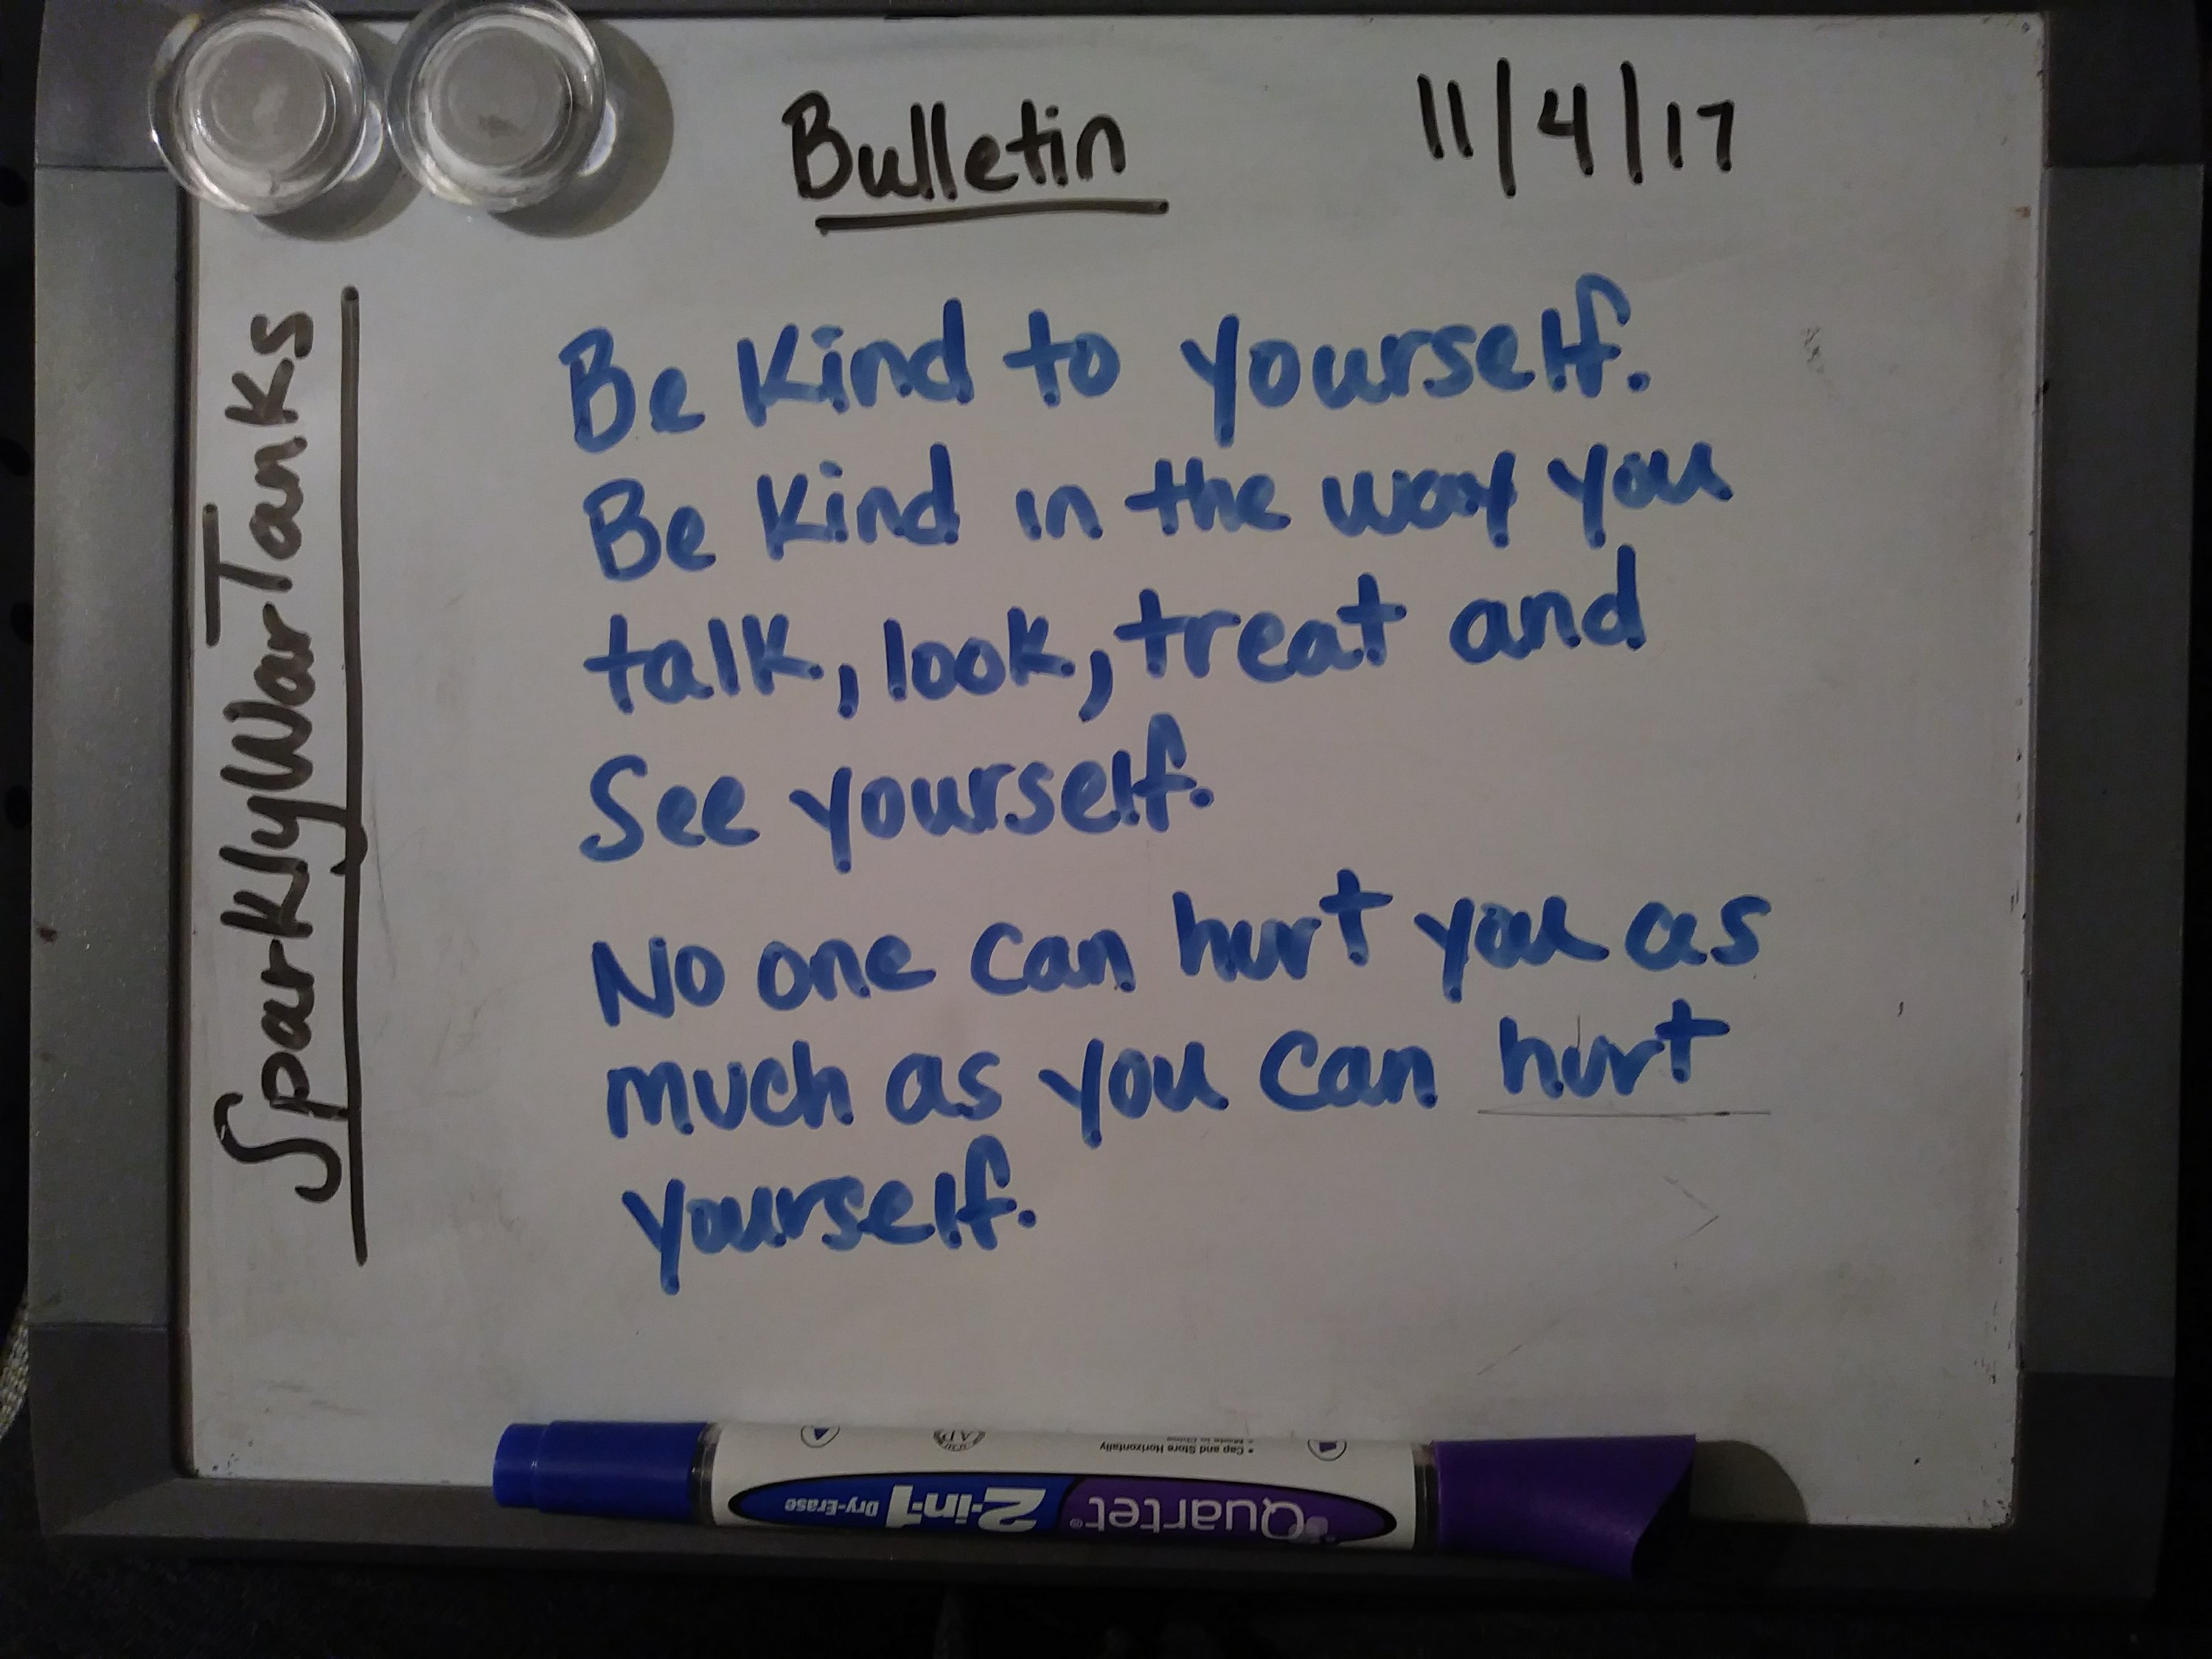 Bulletin
11/4/17
SparklyWarTanks
Be Kind to yourself.
Be Kind in the way you
talk, look, treat and
See yourself.
No one can hurt you as
much as you can hurt
yourself.
Quartet® 2-in-1 Dry-Erase
• Cap and Store Horizontally
• Made in China
AP